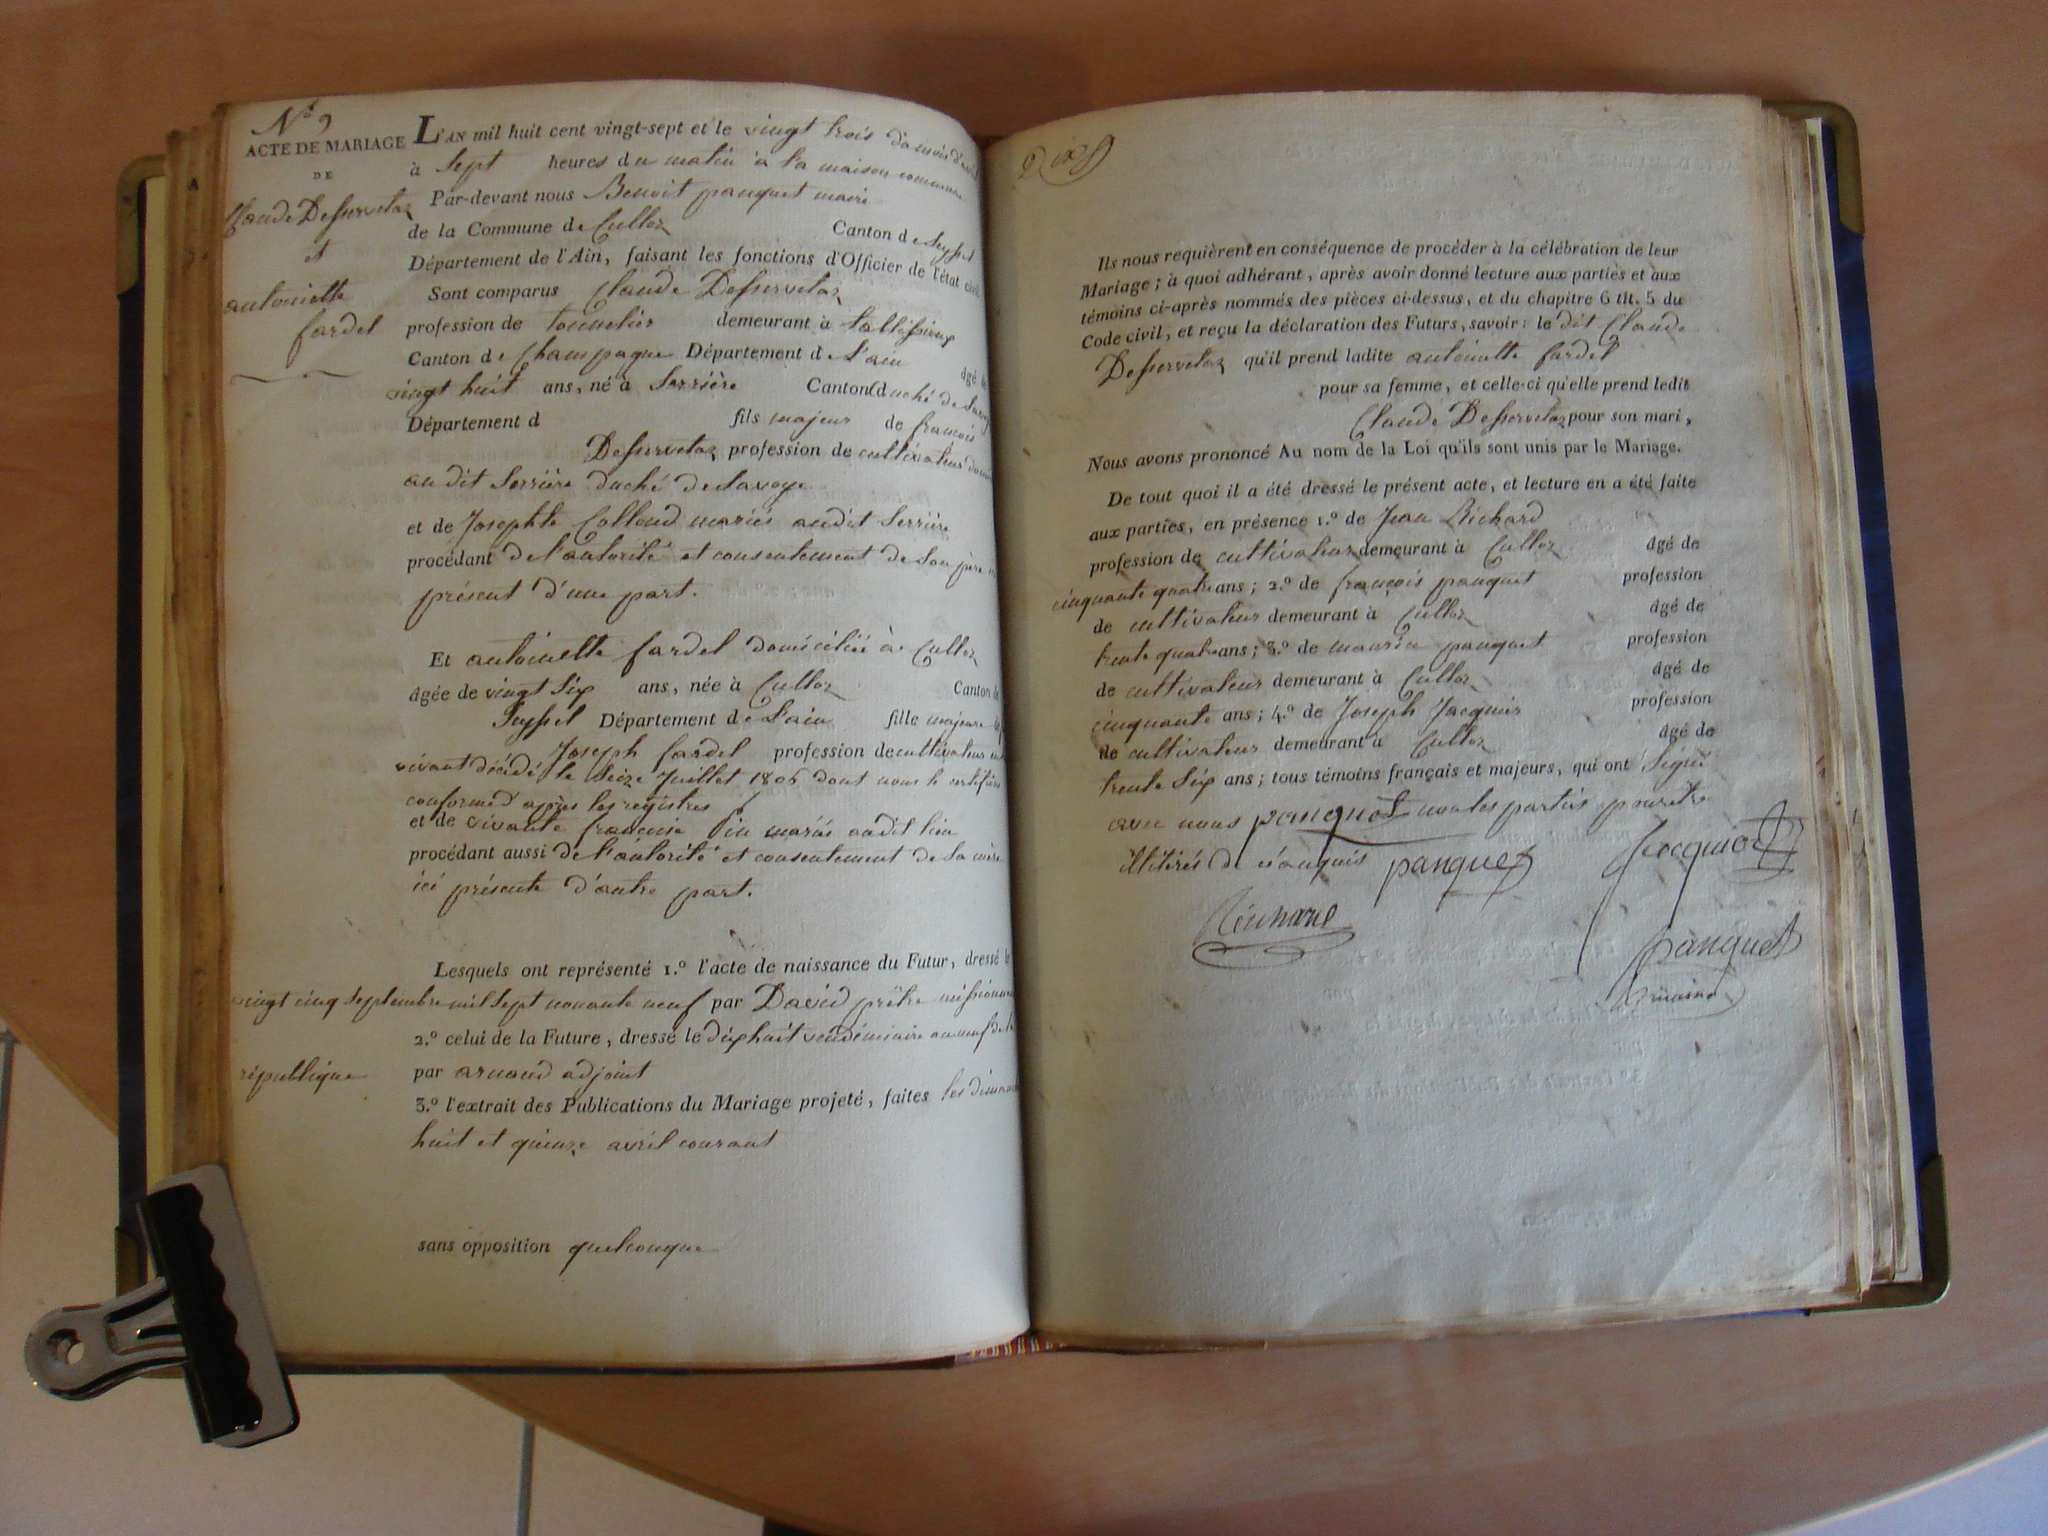 N° 9
ACTE DE MARIAGE
DE
Claude Desservetaz
et
antoinette
fardel
L'AN mil huit cent vingt-sept et le vingt trois du mois d'avril
à Sept heures du matin à la maison commune
Par-devant nous Benoit pauquet maire
de la Commune de Culloz Canton de Seyssel
Département de l'Ain, faisant les fonctions d'Officier de l'état civil
Sont comparus Claude Desservetaz
profession de tonnelier demeurant à tallissieux
Canton de Champagne Département de l'ain âgé de
vingt huit ans, né à Serrière Canton (duché de Savoye
Département d fils majeur de francois
Desservetaz profession de cultivateur
au dit Serrière duché de Savoye
et de Josephte Colloud mariés audit Serrière
procédant de l'autorité et consentement de son père
présent d'une part.
Et antoinette fardel domiciliée à Culloz
âgée de vingt Six ans, née à Culloz Canton de
Seyssel Département de l'ain fille majeure de
Joseph fardel profession de cultivateur en
vivant décédé le Seize Juillet 1806 dont nous certifié
conformed après les registres
et de vivante francoise mariés audit lieu
procédant aussi de l'autorité et consentement de Sa mère
ici présente d'autre part.
Lesquels ont représenté 1.° l'acte de naissance du Futur, dressé le
vingt cinq Septembre mil Sept nonante neuf par David prêtre missionnaire
2.° celui de la Future, dressé le dix huit vendémiaire an neuf de la
république par arnaud adjoint
3.° l'extrait des Publications du Mariage projeté, faites les dimanches
huit et quinze avril courant
sans opposition quelconque
Ils nous requièrent en conséquence de procéder à la célébration de leur
Mariage ; à quoi adhérant, après avoir donné lecture aux parties et aux
témoins ci-après nommés des pièces ci-dessus, et du chapitre 6 tit. 5 du
Code civil, et reçu la déclaration des Futurs, savoir : le dit Claude
Desservetaz qu'il prend ladite antoinette fardel
pour sa femme, et celle-ci qu'elle prend ledit
Claude Desservetaz pour son mari,
Nous avons prononcé Au nom de la Loi qu'ils sont unis par le Mariage.
De tout quoi il a été dressé le présent acte, et lecture en a été faite
aux parties, en présence 1.° de Jean Richard
profession de cultivateur demeurant à Culloz âgé de
cinquante quatre ans ; 2.° de françois pauquet profession
de cultivateur demeurant à Culloz âgé de
trente quatre ans ; 3.° de maurin pauquet profession
de cultivateur demeurant à Culloz âgé de
cinquante ans ; 4.° de Joseph Jacquier profession
de cultivateur demeurant à Culloz âgé de
trente Six ans ; tous témoins français et majeurs, qui ont Signé
avec nous pauquet non les parties pour être
illitirés de ce enquis pauquet Jacquier
Richard
pauquet